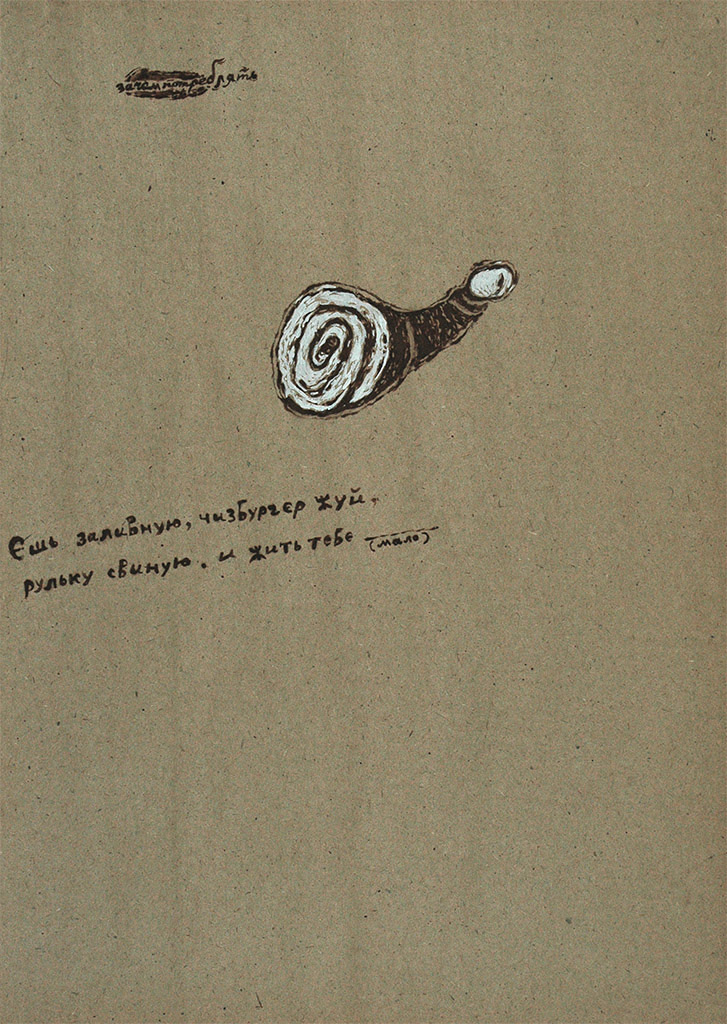 зачем потреблять
Ешь заливную, чизбургер жуй,
рульку свиную. и жить тебе (мало)